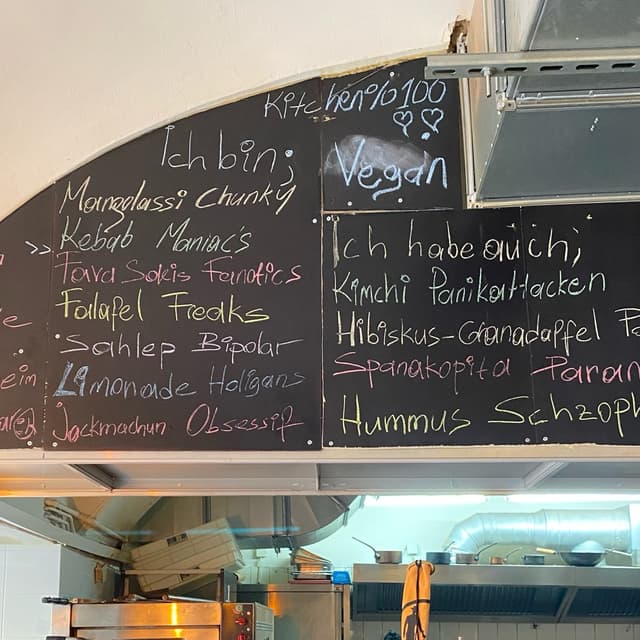 Kitchen%100
Vegan
Ich bin;
Mangolassi Chunky
>> Kebab Maniac's
Fava Sakis Fanatics
Falafel Freaks
Sahlep Bipolar
Limonade Holigans
Jackmachun Obsessif
Ich habe auch;
Kimchi Panikattacken
Hibiskus-Granadapfel
Spanakopita Paran
Hummus Schzoph